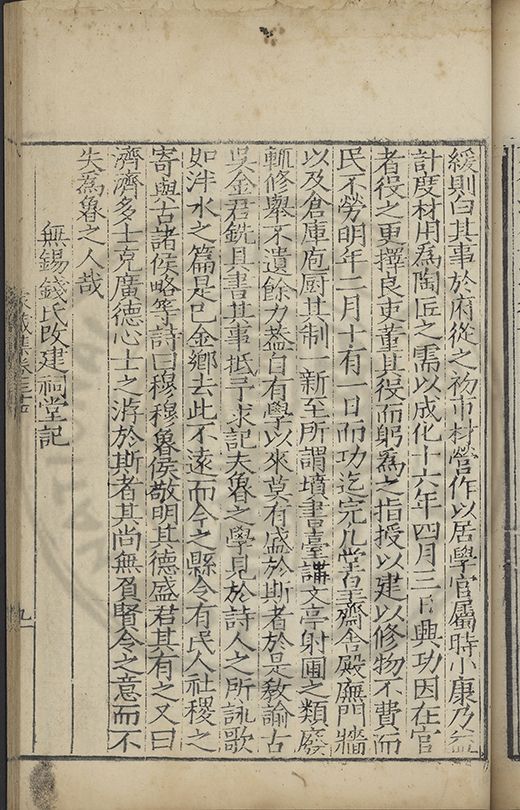 緩則白其事於府從之初市材營作以居學官屬時小康乃益
計度材用為陶匠之需以成化十六年四月三日興功因在官
者役之更擇良吏董其役而躬為之指授以建以修物不費而
民不勞明年二月十有一日而功迄完凡堂皇齋舍殿廡門牆
以及倉庫庖厨其制一新至所謂墳書臺講文亭射圃之類廢
輒修舉不遺餘力葢自有學以來莫有盛於斯者於是敎諭古
吳金君銑具書其事抵予求記夫魯之學見於詩人之所詠歌
如泮水之篇是已金鄉去此不遠而今之縣令有民人社稷之
寄與古諸侯略等詩曰穆穆魯侯敬明其德盛君其有之又曰
濟濟多士克廣德心士之游於斯者其尚無負賢令之意而不
失為魯之人哉
無錫錢氏改建祠堂記
家藏集卷三十四
九